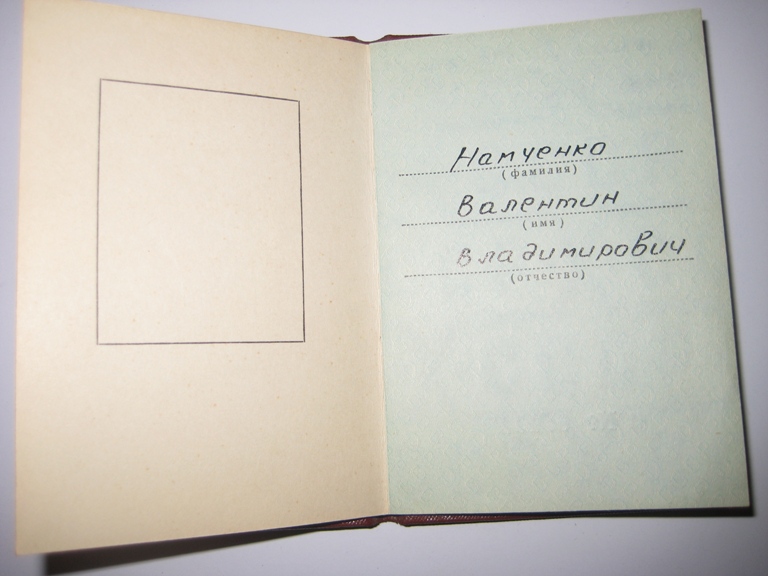 Натченко
(фамилия)
Валентин
(имя)
Владимирович
(отчество)